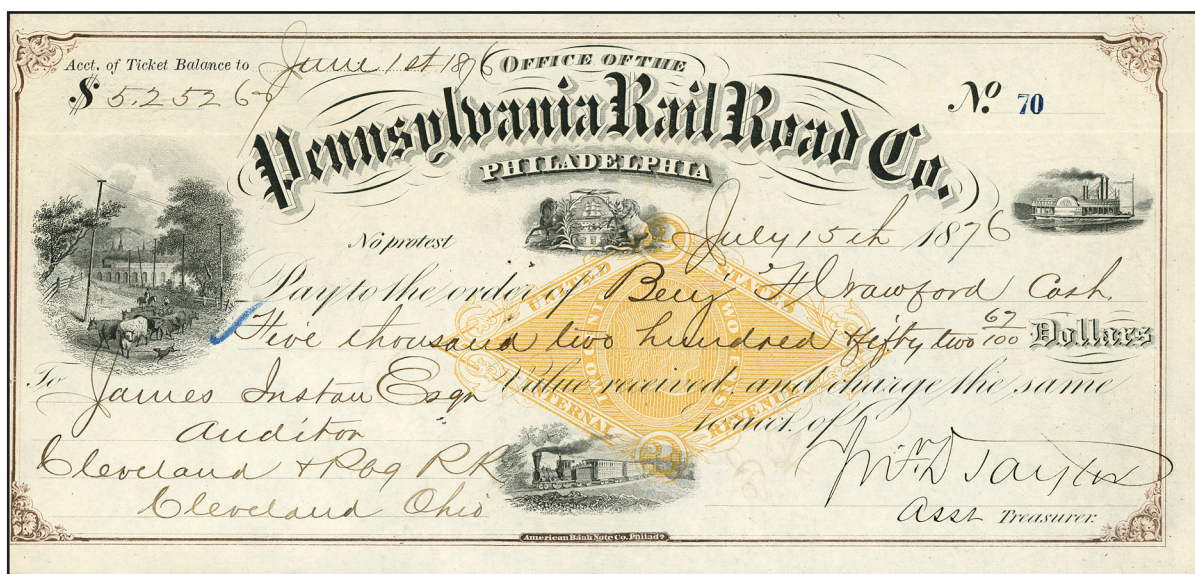 Acct. of Ticket Balance to June 1st 1876
$ 5,252 67
OFFICE OF THE
Pennsylvania Rail Road Co.
PHILADELPHIA
No 70
No protest
July 15th 1876
Pay to the order of Benj F Crawford Cash
Five thousand two hundred & fifty two 67/100 Dollars
Value received, and charge the same
to acct. of
To
James Esqr
Auditor
Cleveland & R R
Cleveland Ohio
UNITED STATES
TWO CENTS
INTERNAL REVENUE
Wm D Taylor
Asst Treasurer.
American Bank Note Co. Philada